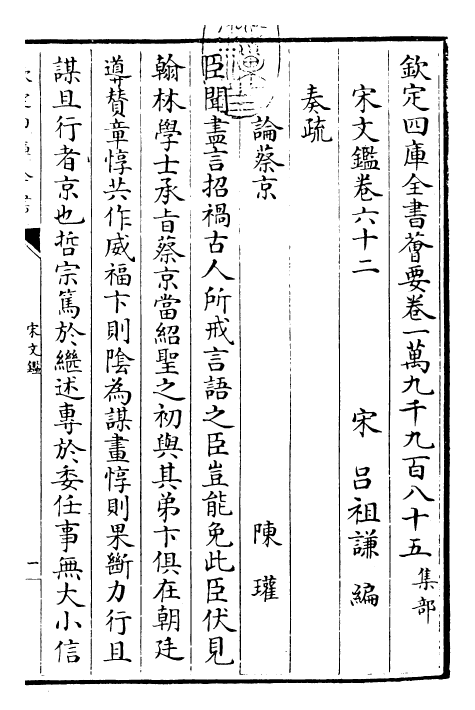 欽定四庫全書薈要卷一萬九千九百八十五集部
宋文鑑卷六十二
宋 呂祖謙 編
奏疏
論蔡京
陳瓘
臣聞盡言招禍古人所戒言語之臣豈能免此臣伏見
翰林學士承旨蔡京當紹聖之初與其弟卞俱在朝廷
導贊章惇共作威福卞則陰為謀畫惇則果斷力行且
謀且行者京也哲宗篤於繼述專於委任事無大小信
宋文鑑
一